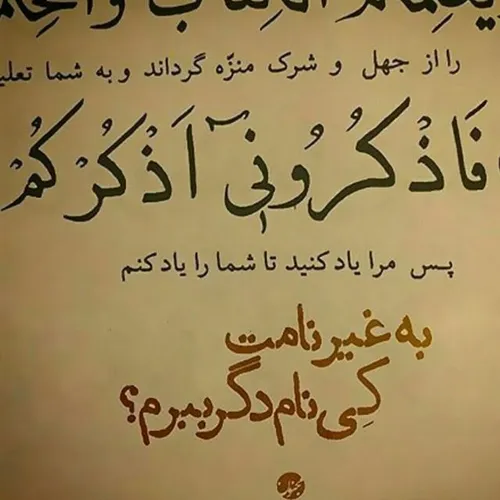 الْكِتَابَ وَالْحِكْمَ
را از جهل و شرک منزّه گرداند و به شما تعلی
فَاذْكُرُونِي أَذْكُرْكُمْ
پس مرا یاد کنید تا شما را یاد کنم
به غیر نامت
کِی نام دگر ببرم؟